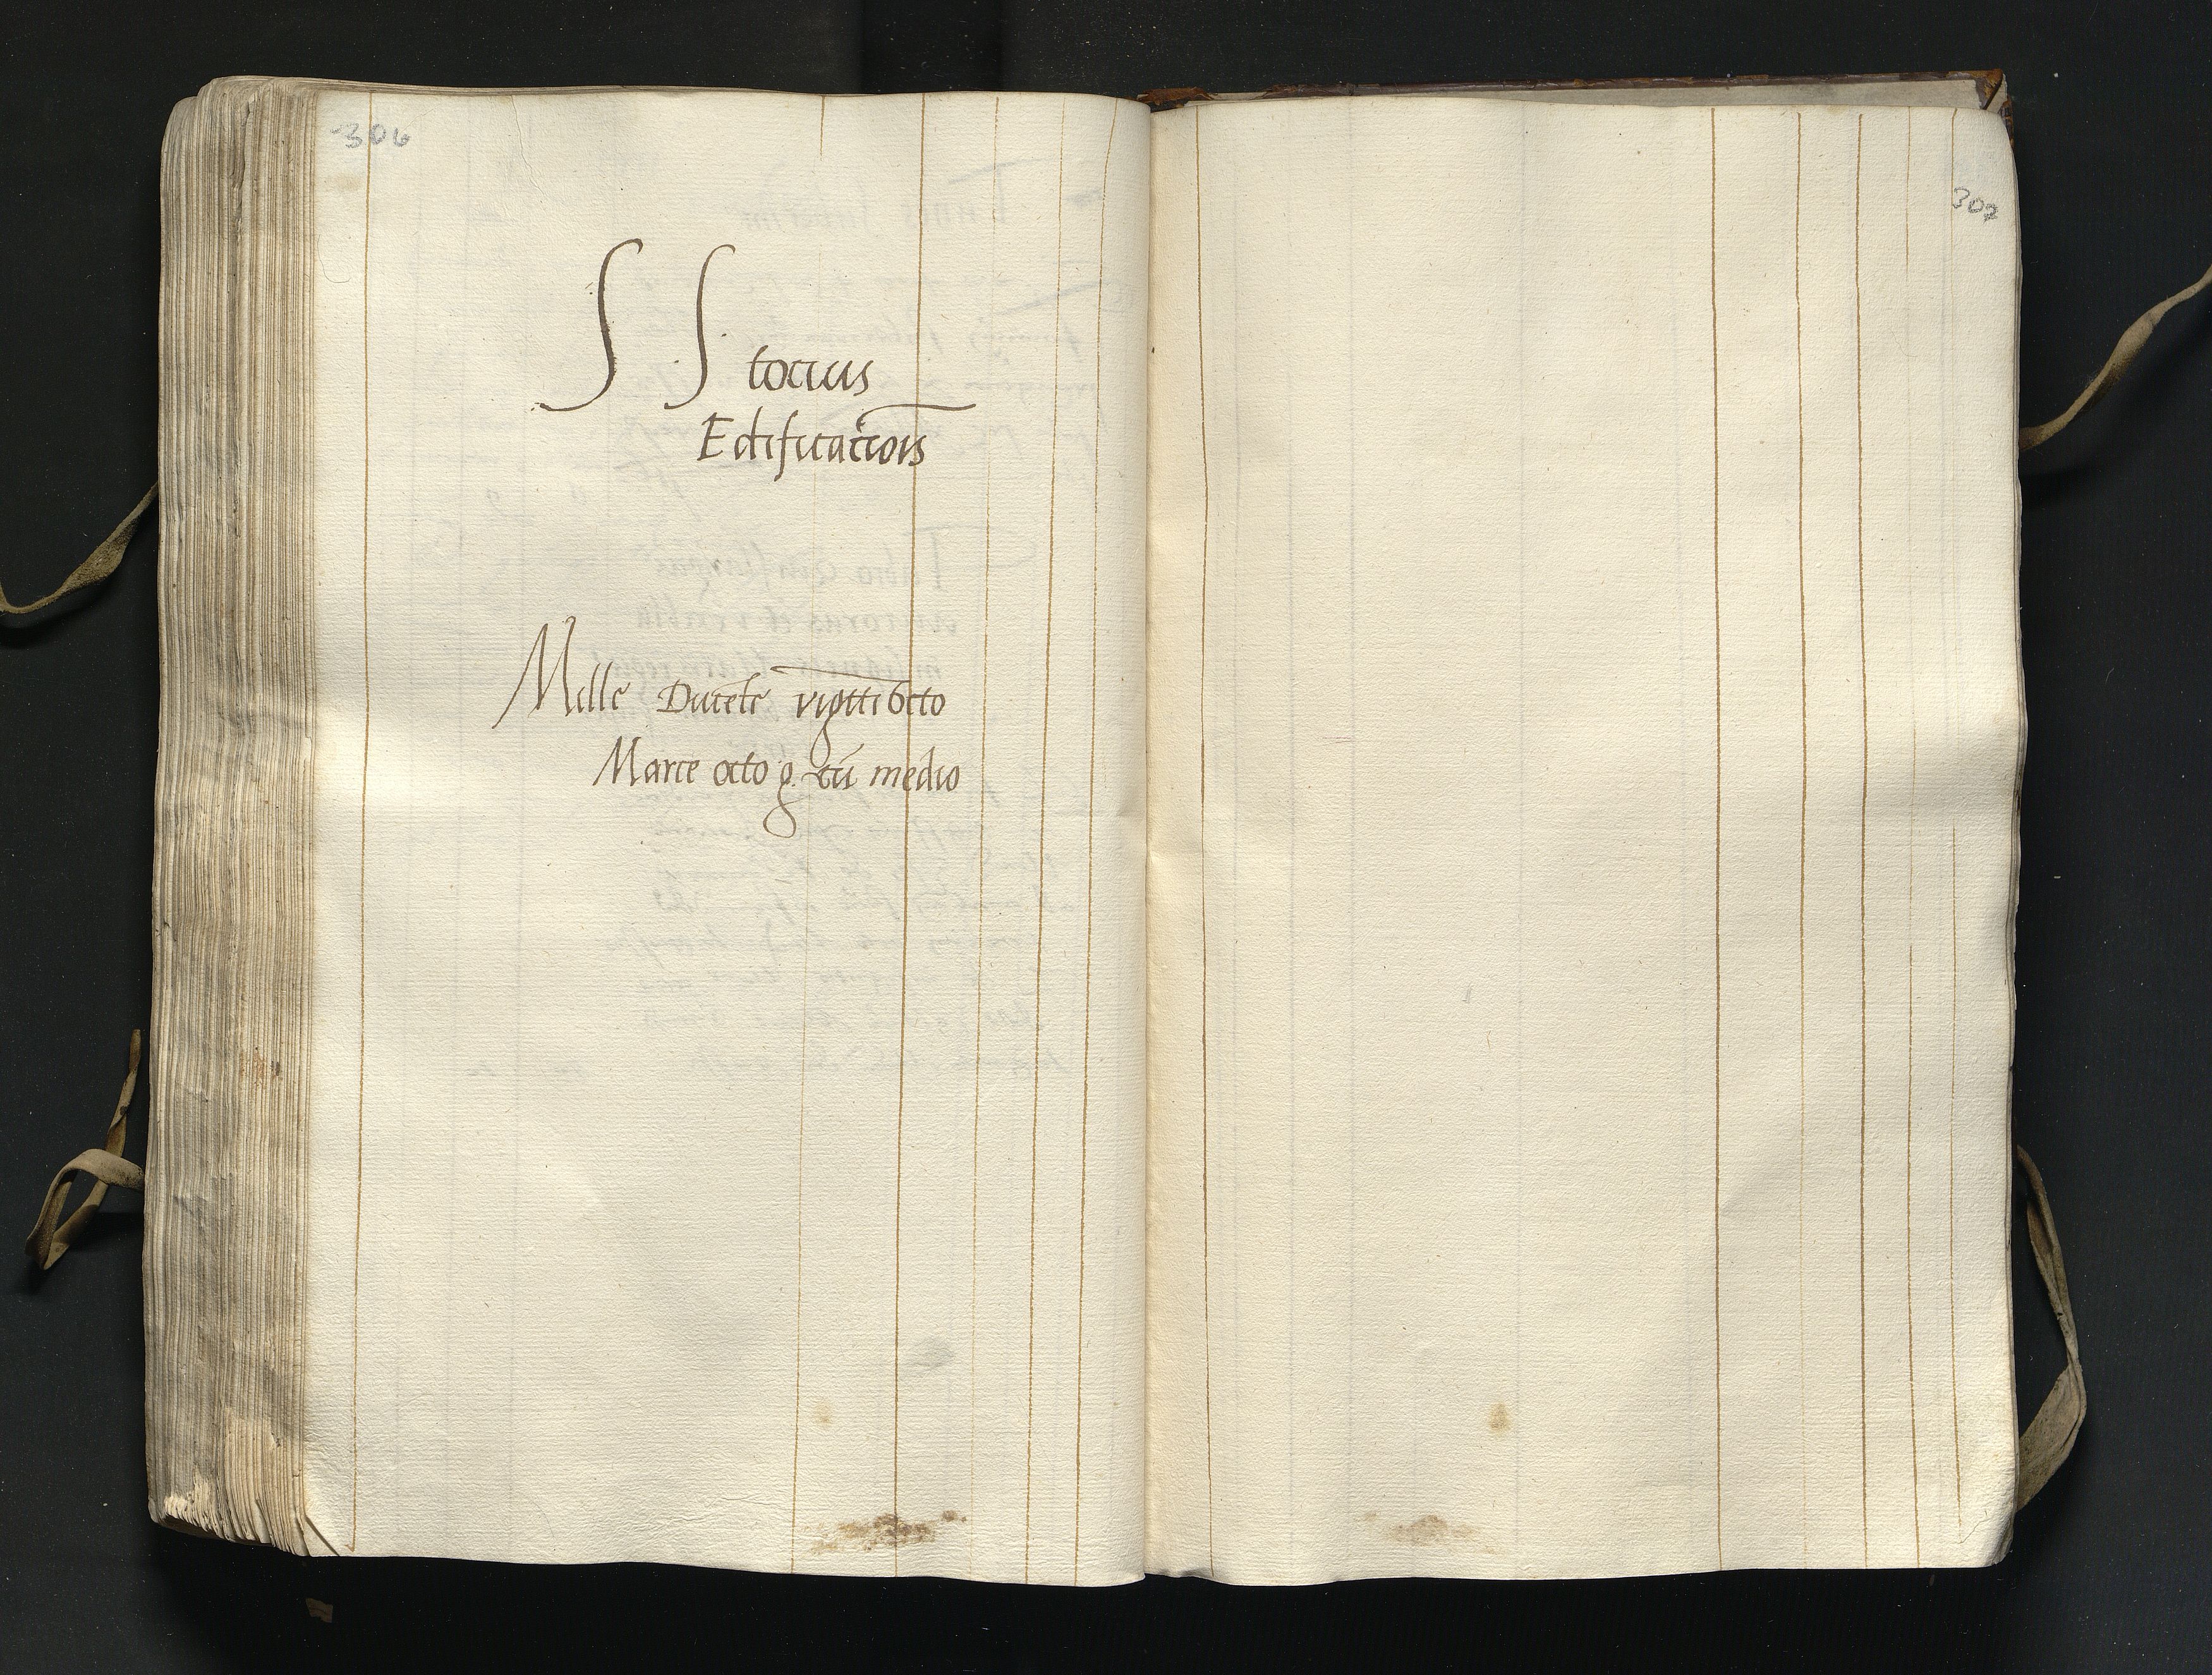 306
S S tocius
Edificatiois
Mille Ducete vigitiocto
Marce octo g cu medio
307